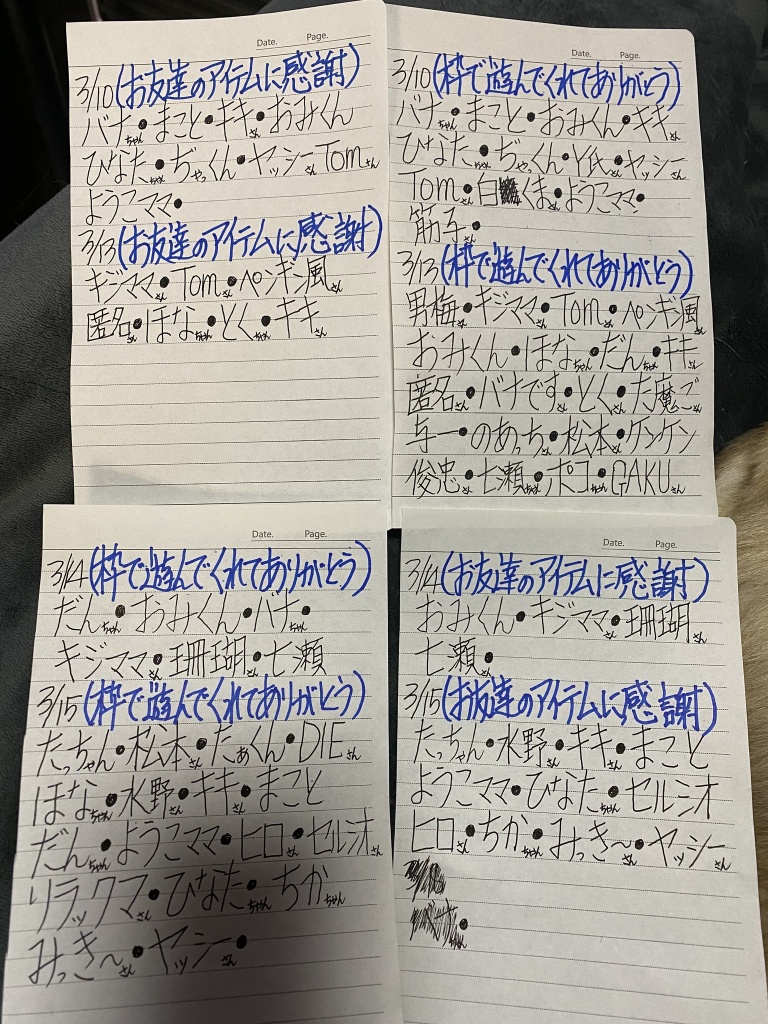 Date. Page.
3/10(お友達のアイテムに感謝)
バナちゃん●まこと●キキさん●おみくん
ひなたちゃん●ぢゃっくん●ヤッシーさんTomさん
ようこママ●
3/13(お友達のアイテムに感謝)
キジママ●Tomさん●ペンギン風さん
匿名さん●ほなちゃん●とくさん●キキさん
Date. Page.
3/10(枠で遊んでくれてありがとう)
バナちゃん●まこと●おみくん●キキさん
ひなたちゃん●ぢゃっくん●Y氏●ヤッシーさん
Tomさん●白くまさん●ようこママ●
筋子さん●
3/13(枠で遊んでくれてありがとう)
男梅さん●キジママ●Tomさん●ペンギン風さん
おみくん●ほなちゃん●だんちゃん●キキさん
匿名さん●バナです●とくさん●た魔ごさん
与一●のあっち●松本さん●ケンケン
俊忠さん●七瀬ちゃん●ポコちゃん●GAKUさん
Date. Page.
3/14(枠で遊んでくれてありがとう)
だんちゃん●おみくん●バナちゃん●
キジママ●珊瑚さん●七瀬
3/15(枠で遊んでくれてありがとう)
たっちゃん●松本さん●たぁくん●DIEさん
ほなちゃん●水野さん●キキさん●まこと
だんちゃん●ようこママ●ヒロさん●セルシオさん
リラックマさん●ひなたちゃん●ちかちゃん
みっき〜さん●ヤッシーさん●
Date. Page.
3/14(お友達のアイテムに感謝)
おみくん●キジママ●珊瑚さん
七瀬●
3/15(お友達のアイテムに感謝)
たっちゃん●水野さん●キキさん●まこと
ようこママ●ひなたちゃん●セルシオ
ヒロさん●ちかちゃん●みっき〜さん●ヤッシーさん